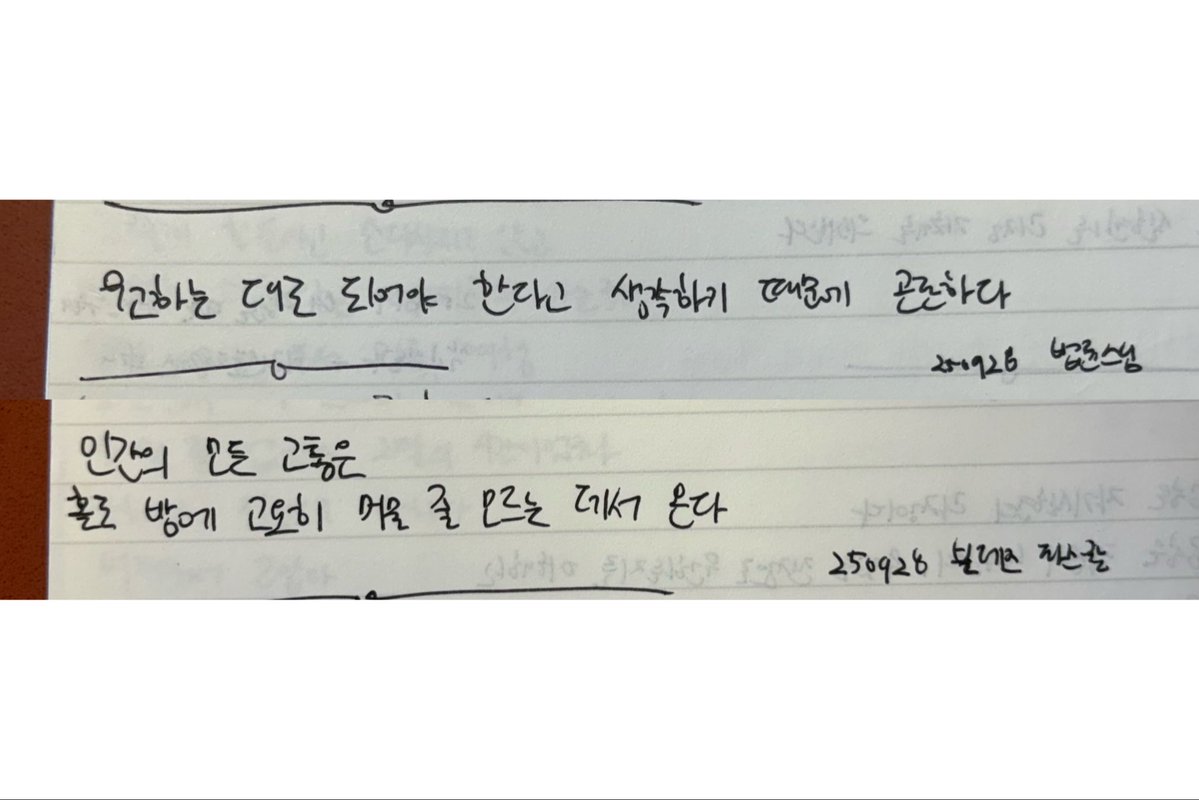 요구하는 대로 되어야 한다고 생각하기 때문에 곤란하다
250928 법륜스님
인간의 모든 고통은
홀로 방에 고요히 머물 줄 모르는 데서 온다
250928 블레즈 파스칼